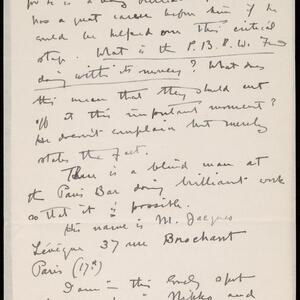 for he is a very brilliant
has a great career before him if he
could be helped over this critical
step. What is the P.B.R.W. Fund
doing with its money? What does
this mean that they should cut
off at this important moment?
He doesn't complain but merely
states the fact.
There is a blind man at
the Paris Bar doing brilliant work
so that it is possible.
His name is M. Jacques
Lévêque 37 rue Brochant
Paris (17e)
I am in this lovely spot
Nikko and